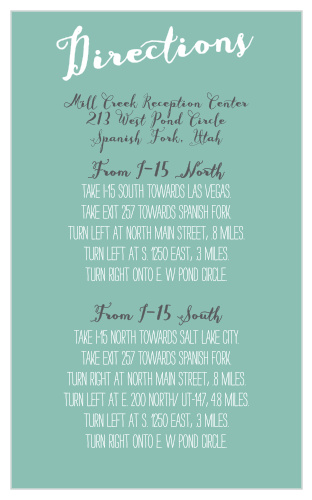 Directions
Mill Creek Reception Center
213 West Pond Circle
Spanish Fork, Utah
From I-15 North
TAKE I-15 SOUTH TOWARDS LAS VEGAS.
TAKE EXIT 257 TOWARDS SPANISH FORK.
TURN LEFT AT NORTH MAIN STREET, .8 MILES.
TURN LEFT AT S. 1250 EAST, .3 MILES.
TURN RIGHT ONTO E. W POND CIRCLE.
From I-15 South
TAKE I-15 NORTH TOWARDS SALT LAKE CITY.
TAKE EXIT 257 TOWARDS SPANISH FORK.
TURN RIGHT AT NORTH MAIN STREET, .8 MILES.
TURN LEFT AT E. 200 NORTH/ UT-147, 4.8 MILES.
TURN LEFT AT S. 1250 EAST, .3 MILES.
TURN RIGHT ONTO E. W POND CIRCLE.